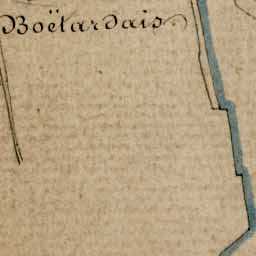 Boëtardais